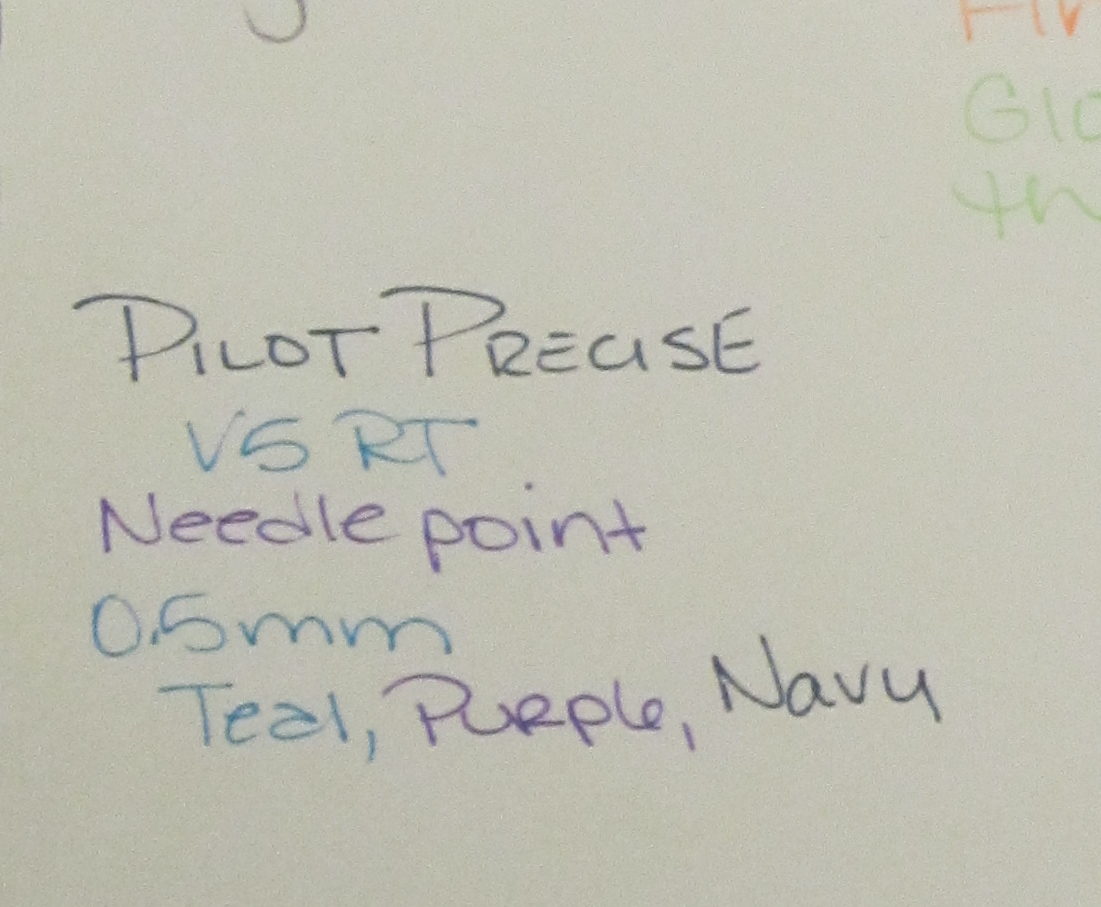 PILOT PRECISE
V5 RT
Needle point
0.5mm
Teal, Purple, Navy